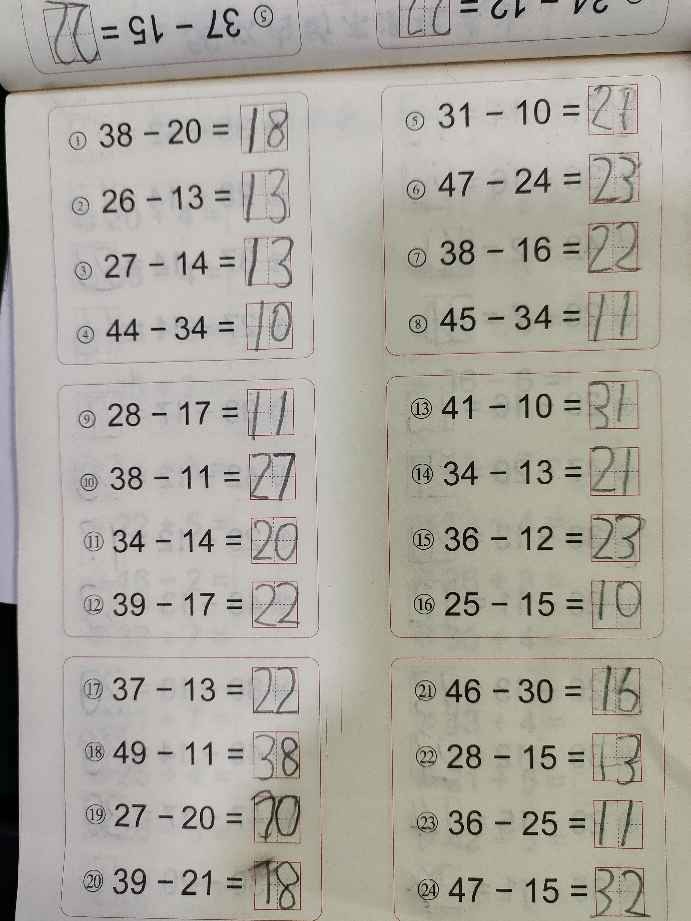 ⑤ 37 − 15 = 22
− 12 = 22
① 38 − 20 = 18
② 26 − 13 = 13
③ 27 − 14 = 13
④ 44 − 34 = 10
⑤ 31 − 10 = 21
⑥ 47 − 24 = 23
⑦ 38 − 16 = 22
⑧ 45 − 34 = 11
⑨ 28 − 17 = 11
⑩ 38 − 11 = 27
⑪ 34 − 14 = 20
⑫ 39 − 17 = 22
⑬ 41 − 10 = 31
⑭ 34 − 13 = 21
⑮ 36 − 12 = 23
⑯ 25 − 15 = 10
⑰ 37 − 13 = 22
⑱ 49 − 11 = 38
⑲ 27 − 20 = 10
⑳ 39 − 21 = 18
㉑ 46 − 30 = 16
㉒ 28 − 15 = 13
㉓ 36 − 25 = 11
㉔ 47 − 15 = 32